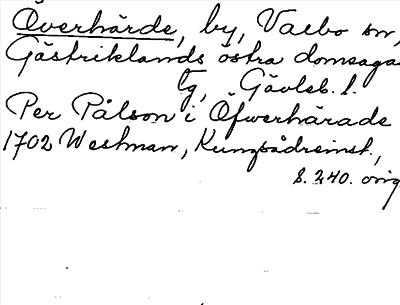 Överhärde, by, Valbo sn,
Gästriklands östra domsaga
tg, Gävleb. l.
Per Pålson i Öfwerhärade
1702 Westman, Kungsådreinst.,
s. 240. orig